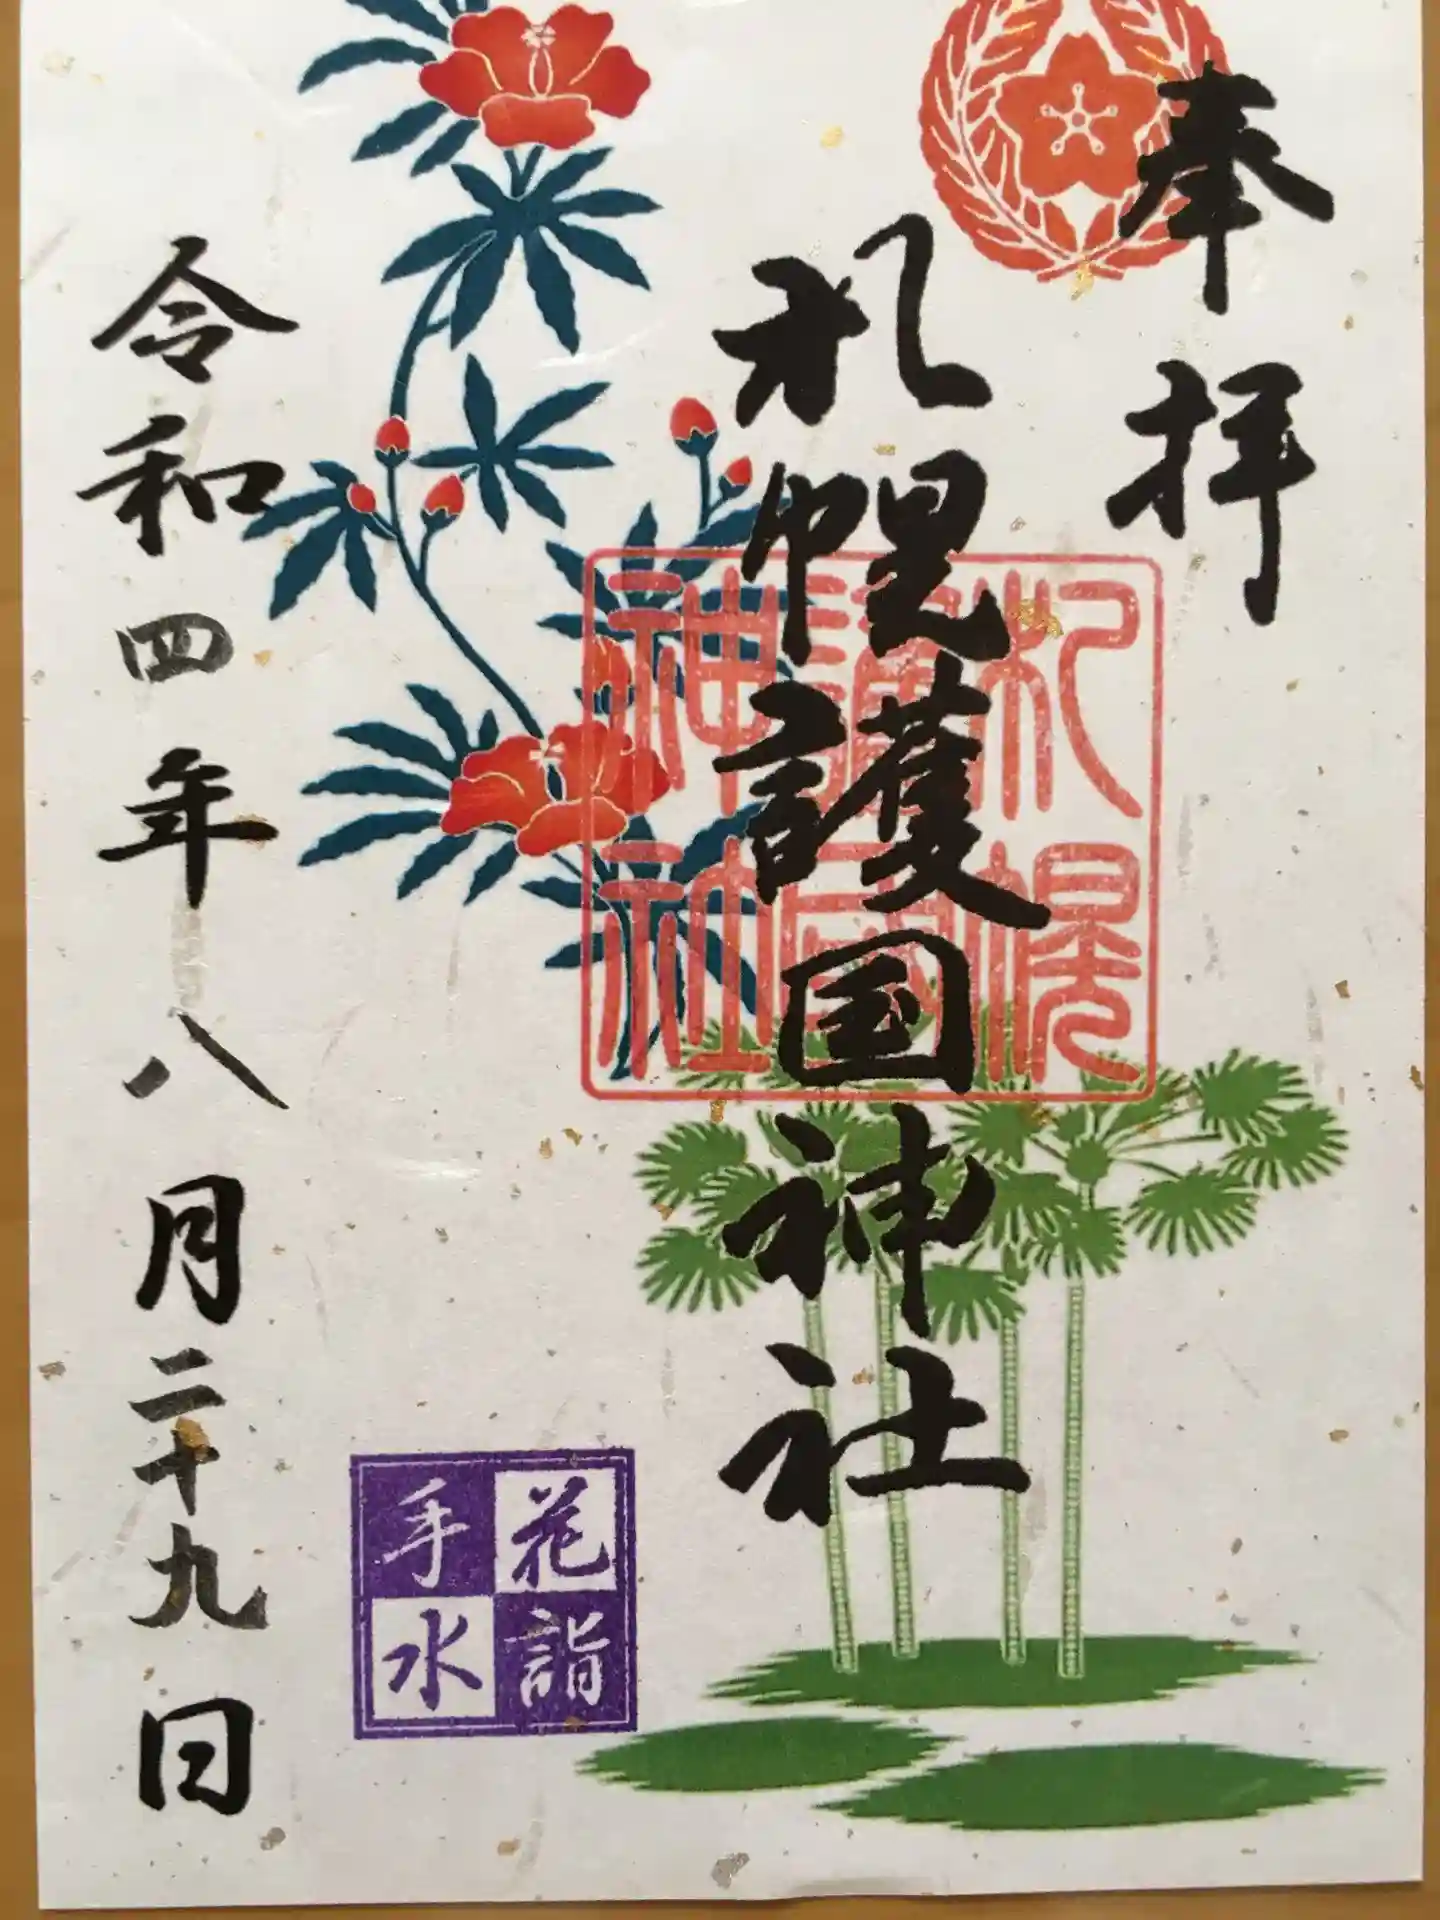 奉拝
札幌護国神社
札幌
護國
神社
花詣
手水
令和四年八月二十九日